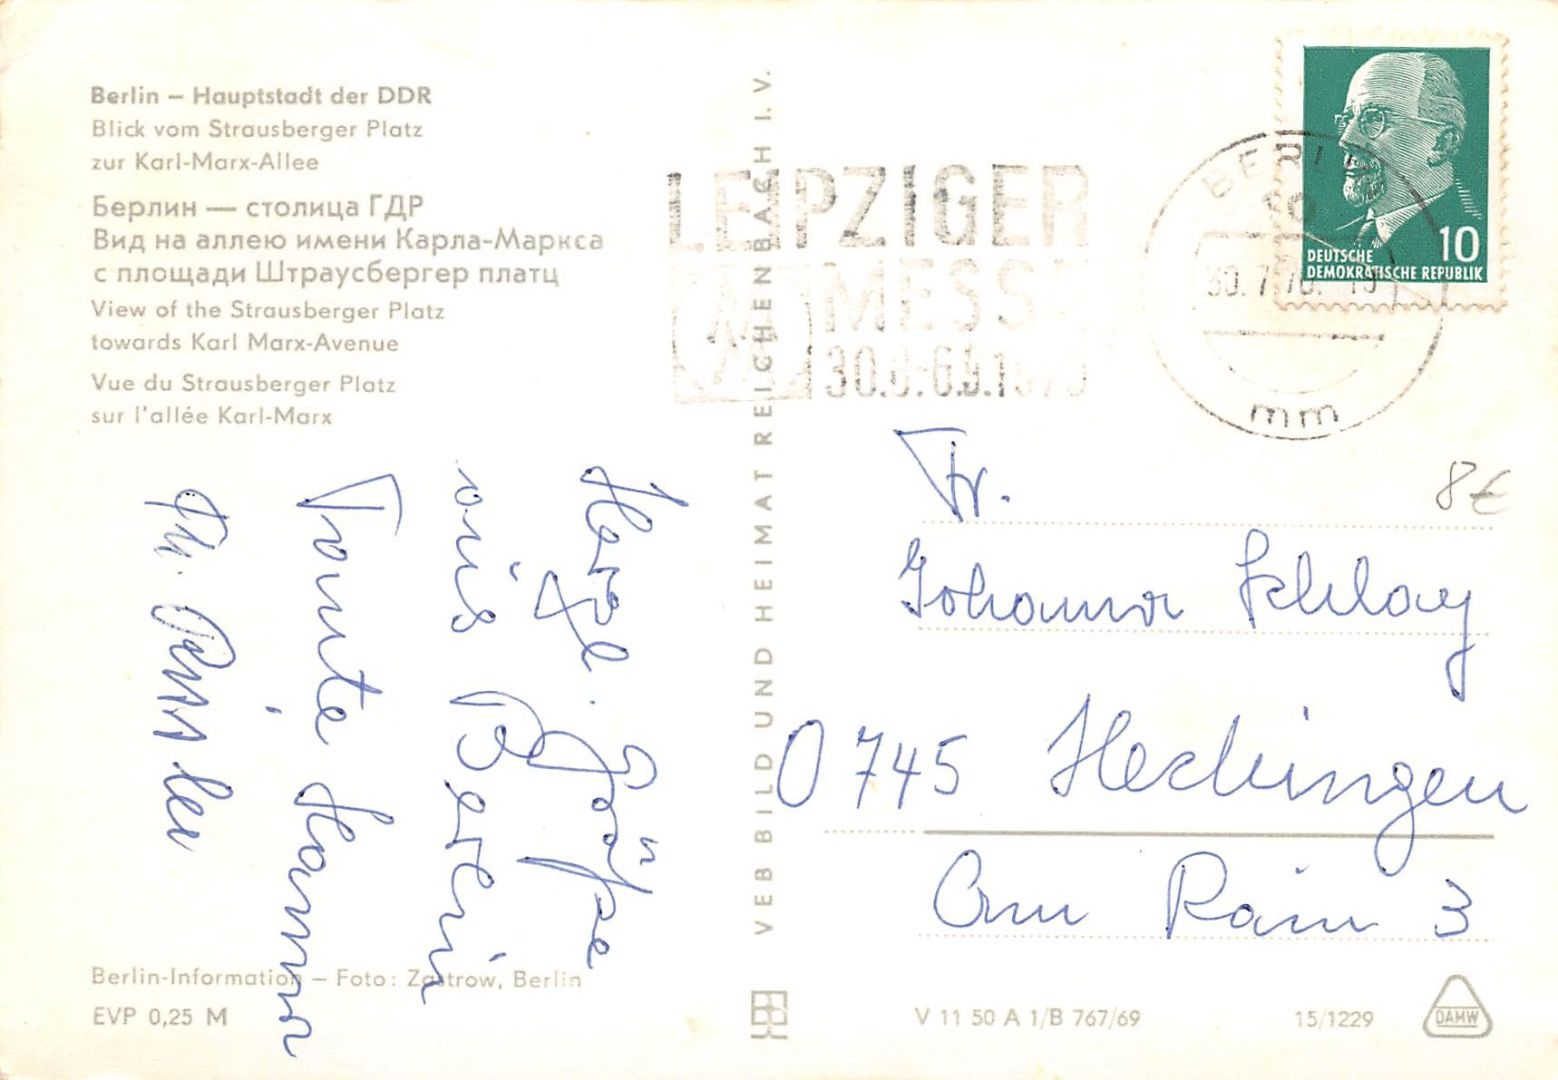 Berlin – Hauptstadt der DDR
Blick vom Strausberger Platz
zur Karl-Marx-Allee
Берлин — столица ГДР
Вид на аллею имени Карла-Маркса
с площади Штраусбергер платц
View of the Strausberger Platz
towards Karl Marx-Avenue
Vue du Strausberger Platz
sur l'allée Karl-Marx
Herzl. Grüße
aus Berlin
Tante Hanna
Berlin-Information – Foto: Zastrow, Berlin
EVP 0,25 M
VEB BILD UND HEIMAT REICHENBACH I. V.
LEIPZIGER
MESSE
BERLIN
mm
10
DEUTSCHE
DEMOKRATISCHE REPUBLIK
8€
Fr.
Johanna
0745 Hechingen
Am Rain 3
V 11 50 A 1/B 767/69
15/1229
DAMW